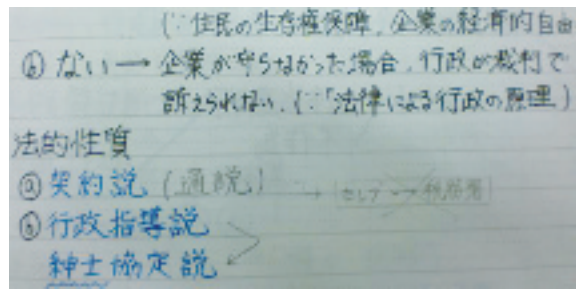 (∵住民の生存権保障、企業の経済的自由
ⓑ ない → 企業が守らなかった場合、行政が裁判で
訴えられない、(∵「法律による行政の原理)
法的性質
ⓐ 契約説 (通説) →
ⓑ 行政指導説
紳士協定説